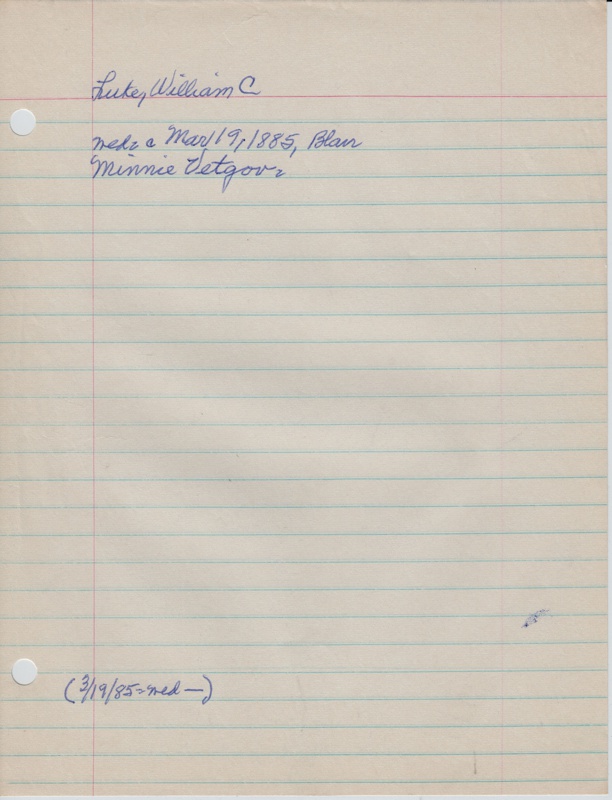 Luke, William C
wed. c Mar 19, 1885, Blair
Minnie Vetgov.
(3/19/85 = wed —)